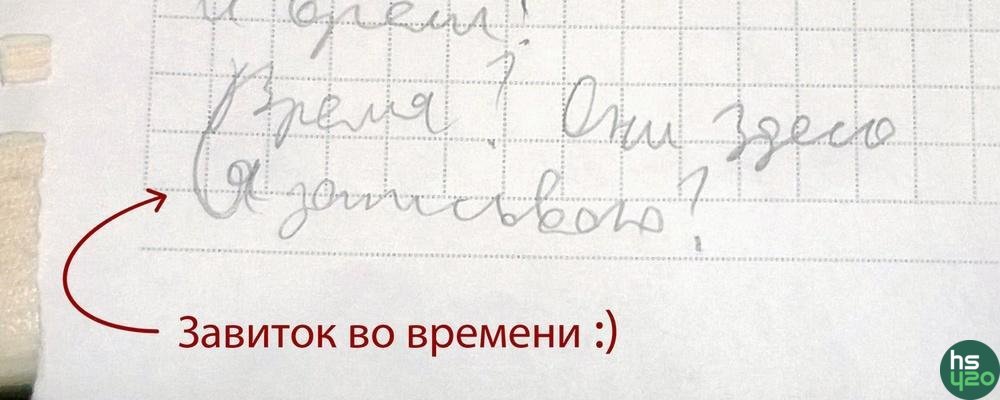 и време!
Время? Они здесь
Я записываю?
Завиток во времени :)
hs
420